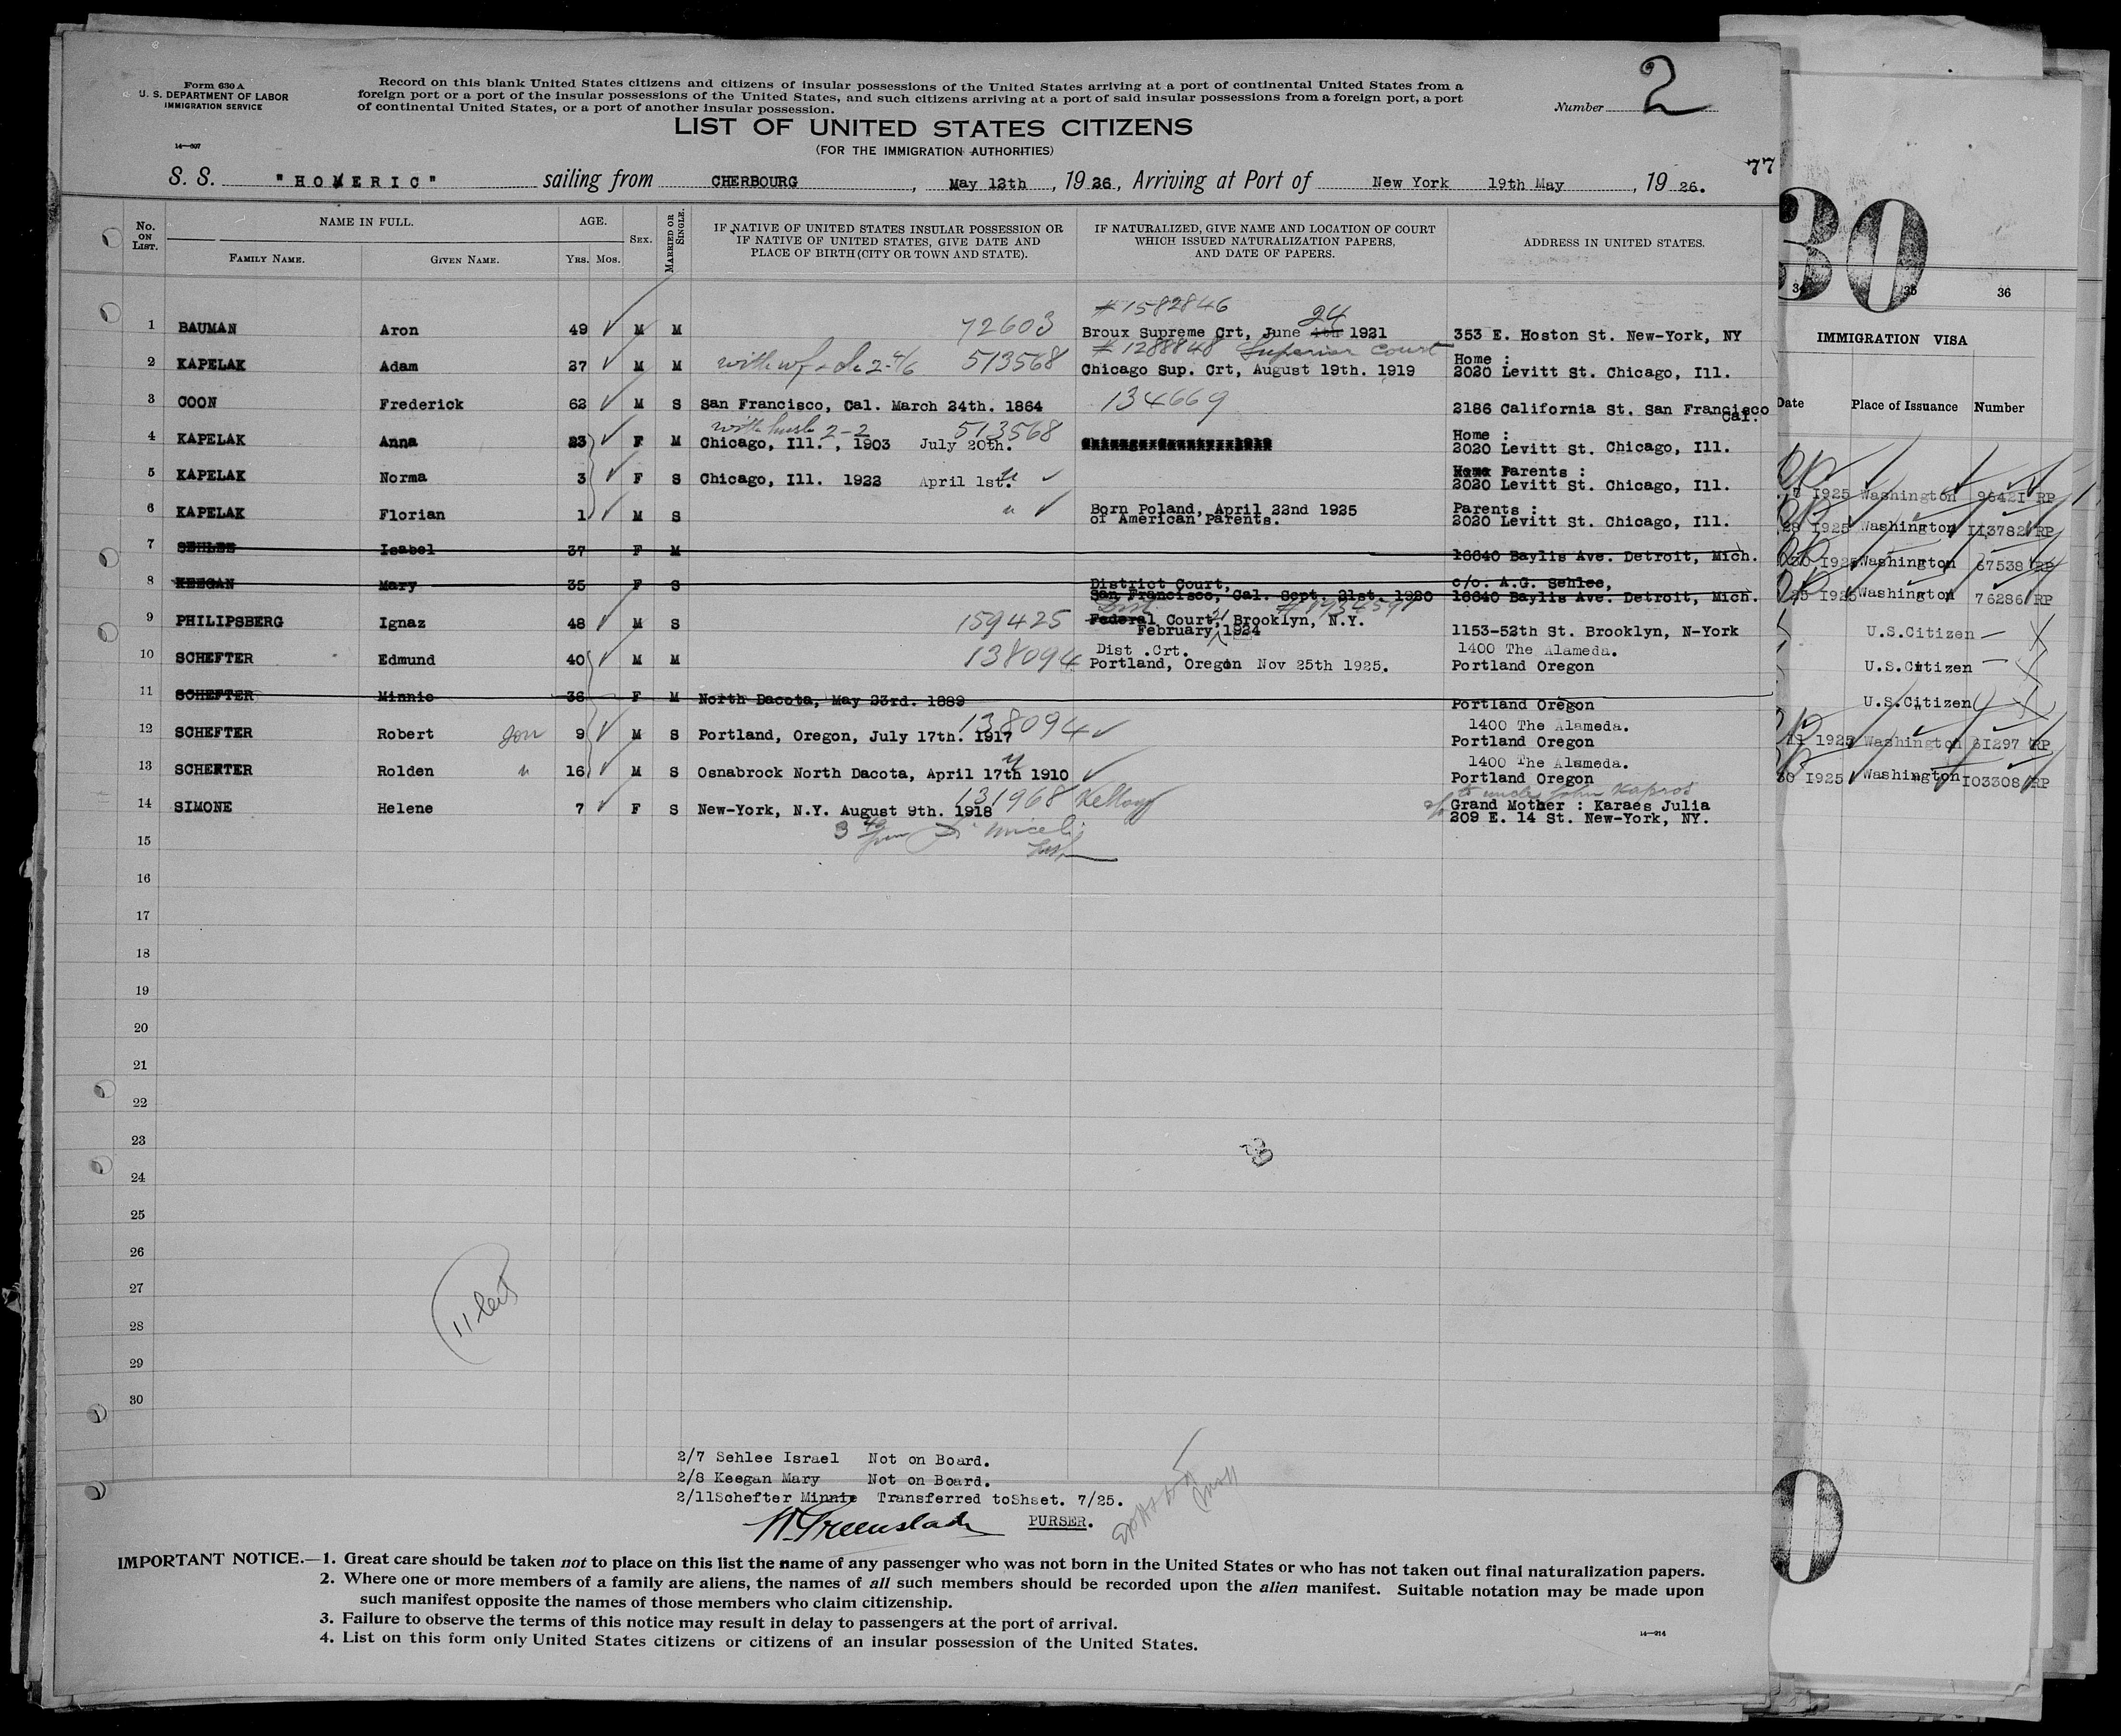 Form 630 A
U. S. DEPARTMENT OF LABOR
IMMIGRATION SERVICE
14—907
Record on this blank United States citizens and citizens of insular possessions of the United States arriving at a port of continental United States from a
foreign port or a port of the insular possessions of the United States, and such citizens arriving at a port of said insular possessions from a foreign port, a port
of continental United States, or a port of another insular possession.
Number 2
LIST OF UNITED STATES CITIZENS
(FOR THE IMMIGRATION AUTHORITIES)
77
S. S. "HOMERIC" sailing from CHERBOURG, May 12th, 1926, Arriving at Port of New York 19th May, 1926.
No. ON LIST. NAME IN FULL. FAMILY NAME. GIVEN NAME. AGE. YRS. MOS. SEX. MARRIED OR SINGLE.
IF NATIVE OF UNITED STATES INSULAR POSSESSION OR
IF NATIVE OF UNITED STATES, GIVE DATE AND
PLACE OF BIRTH (CITY OR TOWN AND STATE).
IF NATURALIZED, GIVE NAME AND LOCATION OF COURT
WHICH ISSUED NATURALIZATION PAPERS,
AND DATE OF PAPERS.
ADDRESS IN UNITED STATES.
#1582846
24
1 BAUMAN Aron 49 M M 72603 Broux Supreme Crt, June 4th 1921 353 E. Hoston St. New-York, NY
#1288848 Superior Court
Home :
2 KAPELAK Adam 27 M M 513568 Chicago Sup. Crt, August 19th. 1919 2020 Levitt St. Chicago, Ill.
3 COON Frederick 62 M S San Francisco, Cal. March 24th. 1864 134669 2186 California St. San Francisco
Cal.
with husb 2-2 513568
Home :
4 KAPELAK Anna 23 F M Chicago, Ill. , 1903 July 20th. 2020 Levitt St. Chicago, Ill.
Home Parents :
5 KAPELAK Norma 3 F S Chicago, Ill. 1922 April 1st. 2020 Levitt St. Chicago, Ill.
6 KAPELAK Florian 1 M S Born Poland, April 22nd 1925 Parents :
of American Parents. 2020 Levitt St. Chicago, Ill.
7 SEHLEE Isabel 37 F M 16640 Baylis Ave. Detroit, Mich.
8 KEEGAN Mary 35 F S District Court, c/o. A.G. Sehlee,
San Francisco, Cal. Sept. 21st. 1920 16640 Baylis Ave. Detroit, Mich.
9 PHILIPSBERG Ignaz 48 M S 159425 Federal Court, Brooklyn, N.Y.
February 21 1924 1153-52th St. Brooklyn, N-York
Dist .Crt. 1400 The Alameda.
10 SCHEFTER Edmund 40 M M 138094 Portland, Oregon Nov 25th 1925. Portland Oregon
11 SCHEFTER Minnie 36 F M North Dacota, May 23rd. 1889 Portland Oregon
138094 1400 The Alameda.
12 SCHEFTER Robert son 9 M S Portland, Oregon, July 17th. 1917 Portland Oregon
1400 The Alameda.
13 SCHEFTER Rolden " 16 M S Osnabrock North Dacota, April 17th 1910 Portland Oregon
131968 Kellogg to uncle John Kapros
14 SIMONE Helene 7 F S New-York, N.Y. August 9th. 1918 Grand Mother : Karaes Julia
209 E. 14 St. New-York, NY.
15
16
17
18
19
20
21
22
23
24
25
26
27
28
29
30
2/7 Sehlee Israel Not on Board.
2/8 Keegan Mary Not on Board.
2/11Schefter Minnie Transferred toSheet. 7/25.
PURSER.
IMPORTANT NOTICE.—1. Great care should be taken not to place on this list the name of any passenger who was not born in the United States or who has not taken out final naturalization papers.
2. Where one or more members of a family are aliens, the names of all such members should be recorded upon the alien manifest. Suitable notation may be made upon
such manifest opposite the names of those members who claim citizenship.
3. Failure to observe the terms of this notice may result in delay to passengers at the port of arrival.
4. List on this form only United States citizens or citizens of an insular possession of the United States.
14—914
30
35 36
IMMIGRATION VISA
Date Place of Issuance Number
1925 Washington 96421 RP
28 1925 Washington 113782 RP
1925 Washington 67538 RP
1925 Washington 76286 RP
U.S.Citizen —
U.S.Citizen —
U.S.Citizen
11 1925 Washington 61297 RP
30 1925 Washington 103308 RP
0